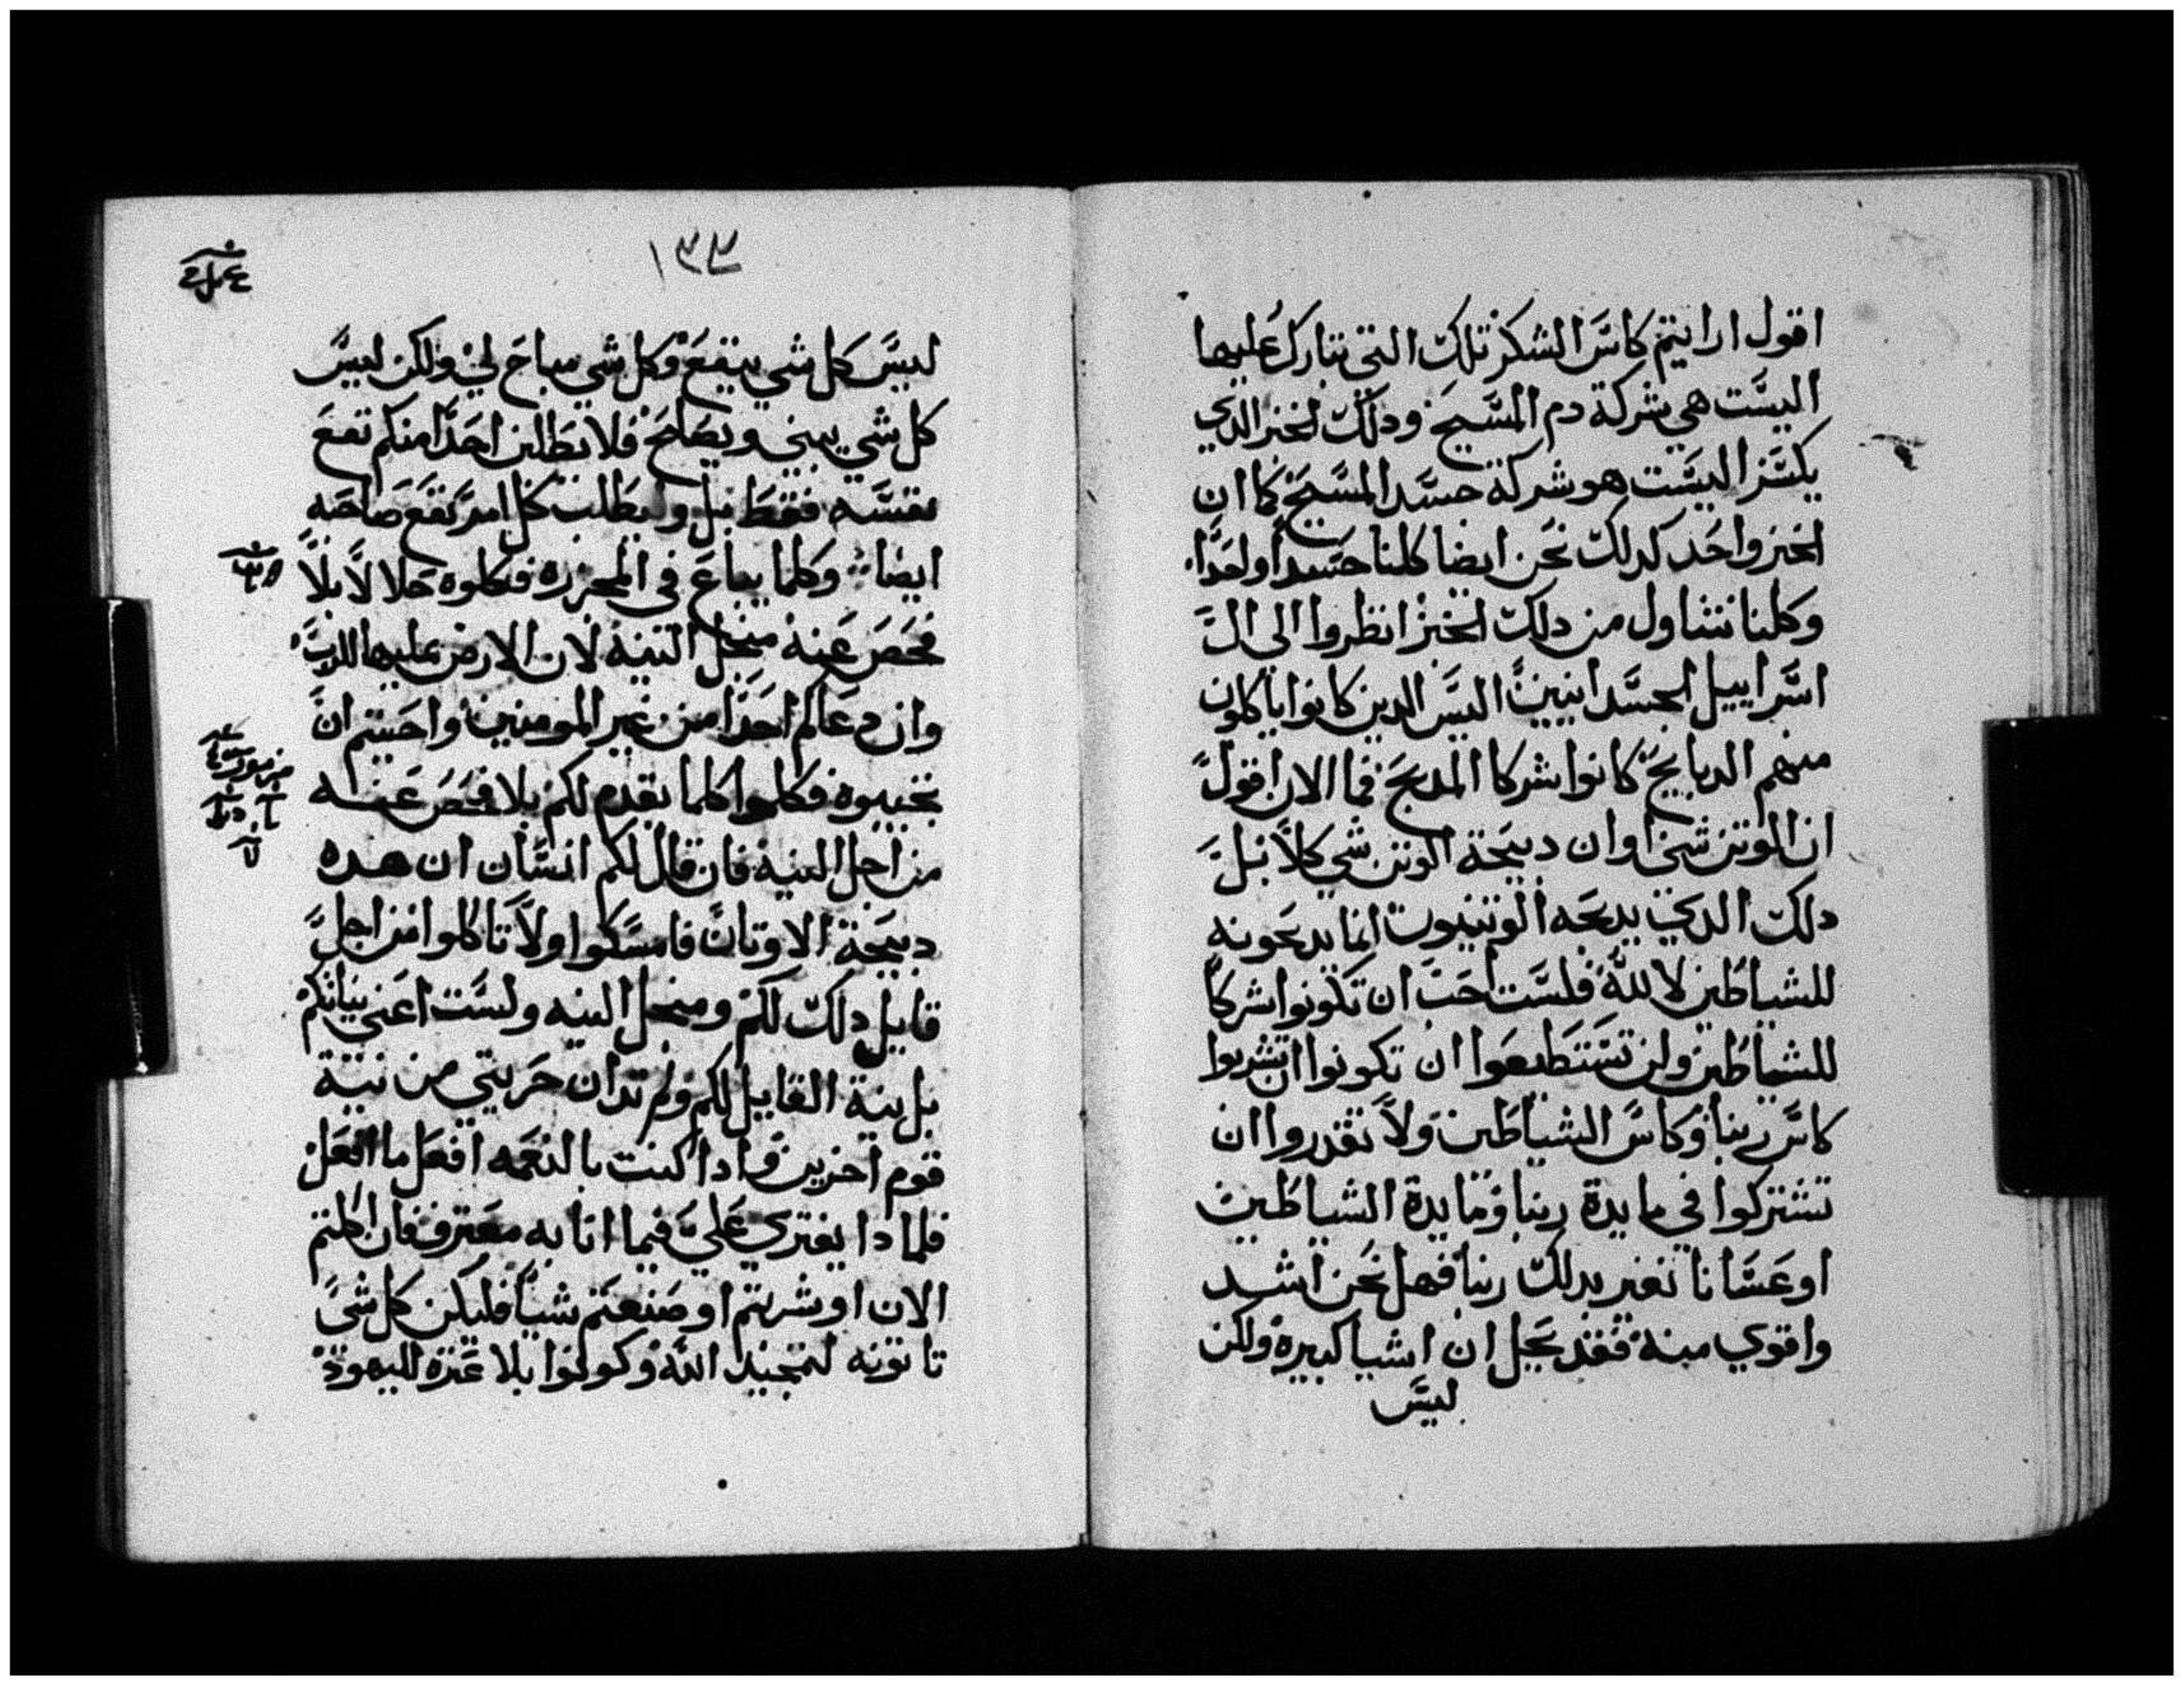 اقول ارايتم كاس الشكر تلك التي نبارك عليها
اليست هي شركة دم المسيح ودلك الخبز الدي
يكسر اليست هو شركة جسد المسيح كما ان
الخبز واحد كدلك نحن ايضا كلنا جسدا واحدا
وكلنا نتناول من دلك الخبز انظروا الى ال
اسراييل الجسدانيين اليس الدين كانوا ياكلون
منهم الدبايح كانوا شركا المدبح فما الان اقول
ان الوتن شي او ان دبيحة الوتن شي كلا بل
دلك الدي يدبحه الوتنيون انما يدبحونه
للشياطين لا لله فلست احب ان تكونوا شركا
للشياطين ولن تستطيعوا ان تكونوا ان تشربوا
كاس ربنا وكاس الشياطين ولا تقدروا ان
تشتركوا في مايدة ربنا ومايدة الشياطين
او عسانا نغير بدلك ربنا فهل نحن اشد
واقوي منه فقد يحل ان اشيا كبيرة ولكن
ليس
١٣٣
ليس كل شي ينفع وكل شي مباح لي ولكن ليس
كل شي يبني ويصلح فلا يطلبن احدا منكم نفع
نفسه فقط بل وليطلب كل امر نفع صاحبه
ايضا وكلما يباع في المجزره فكلوه حلالا بلا
فحص عنه منجل النيه لان الارض بمليها للرب
وان دعاكم احدا من غير المومنين واحببتم ان
تجيبوه فكلوا كلما يقدم لكم بلا فحص عنه
من اجل النيه فان قال لكم انسان ان هده
دبيحة الاوتان فامسكوا ولا تاكلوا من اجل
قايل دلك لكم ومنجل النيه ولست اعني نياتكم
بل نية القايل لكم ولم تدان حريتي من نية
قوم اخرين وادا كنت بالنعمه افعل ما افعل
فلمادا يفتري علي فيما انا به معترف فان اكلتم
الان او شربتم او صنعتم شيا فليكن كل شي
تاتونه لتمجيد الله وكونوا بلا عثره لليهود